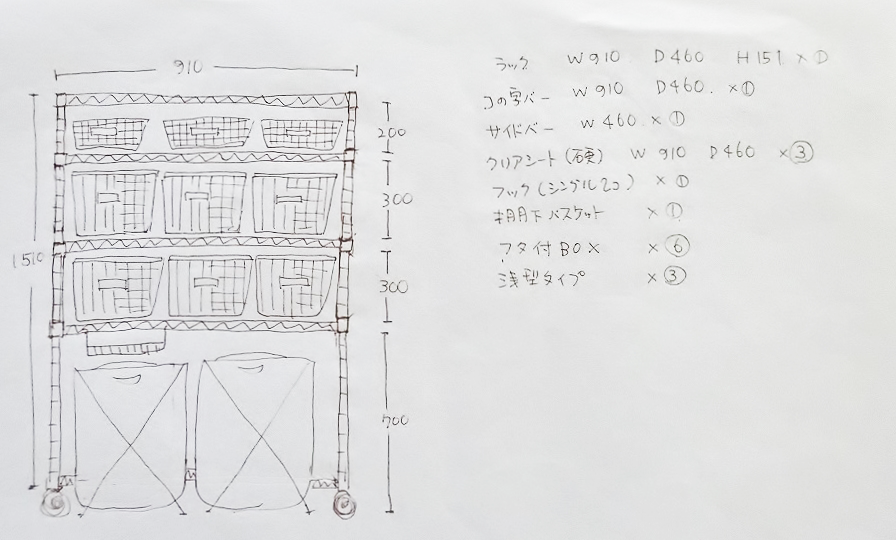 910
200
300
1510
300
700
ラック W910 D460 H151 ×①
コの字バー W910 D460. ×①
サイドバー W460 ×①
クリアシート(硬) W910 D460 ×③
フック(シングル2コ) ×①
棚下バスケット ×①
フタ付BOX ×⑥
浅型タイプ ×③